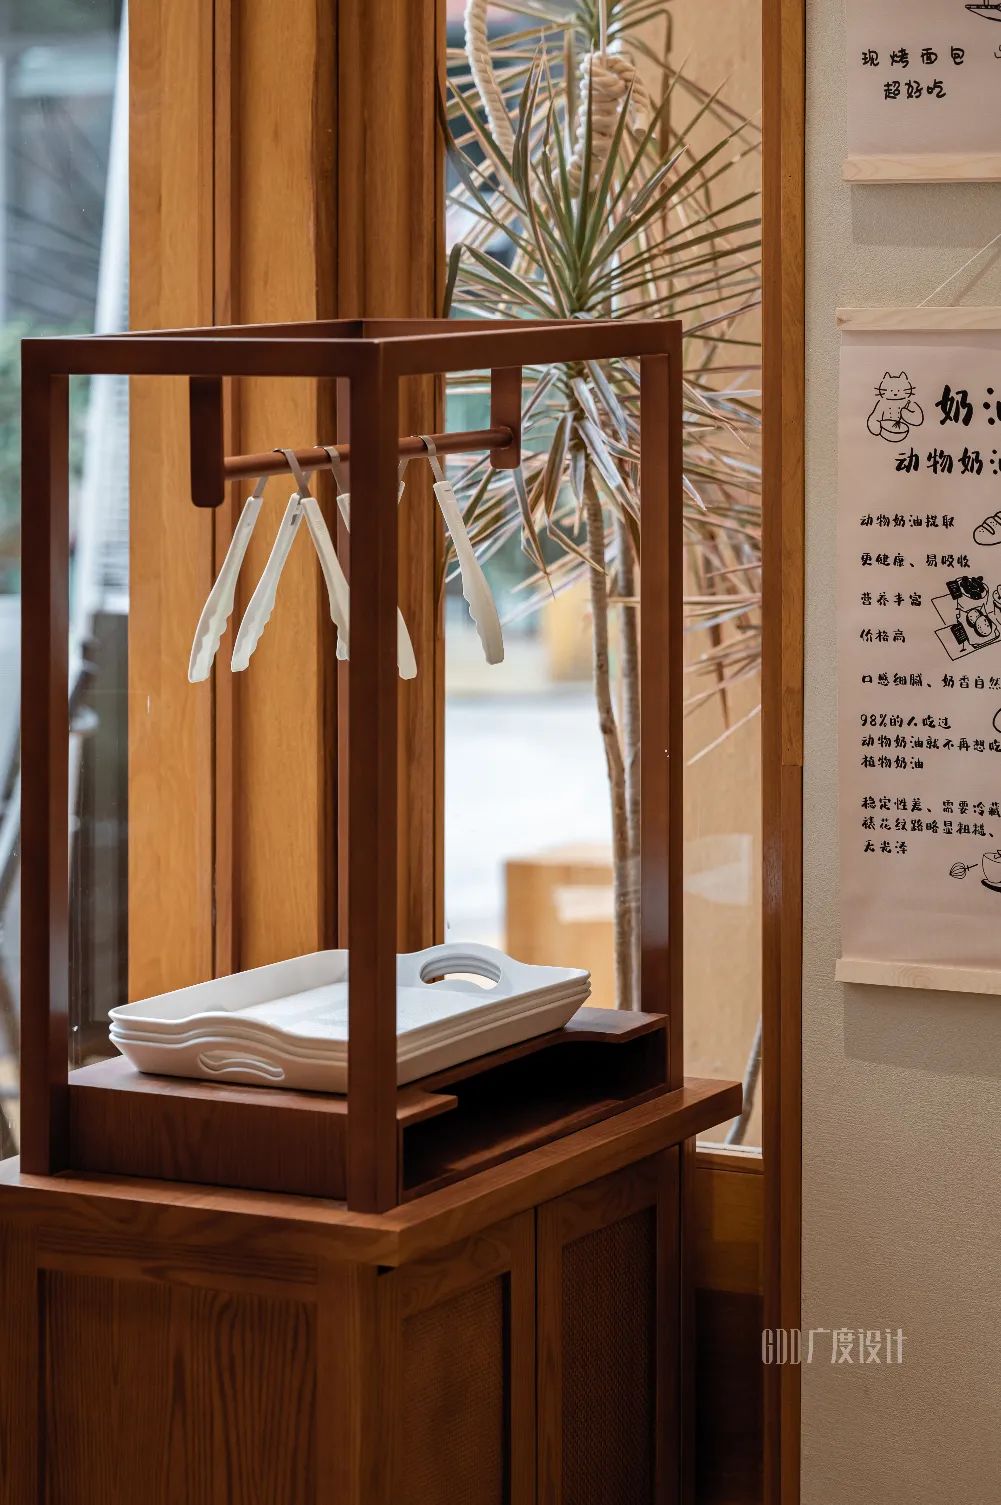 现烤面包
超好吃
奶油
动物奶油
动物奶油提取
更健康、易吸收
营养丰富
价格高
口感细腻、奶香自然
98%的人吃过
动物奶油就不再想吃
植物奶油
稳定性差、需要冷藏
裱花纹路略显粗糙、
无光泽
GDD广度设计